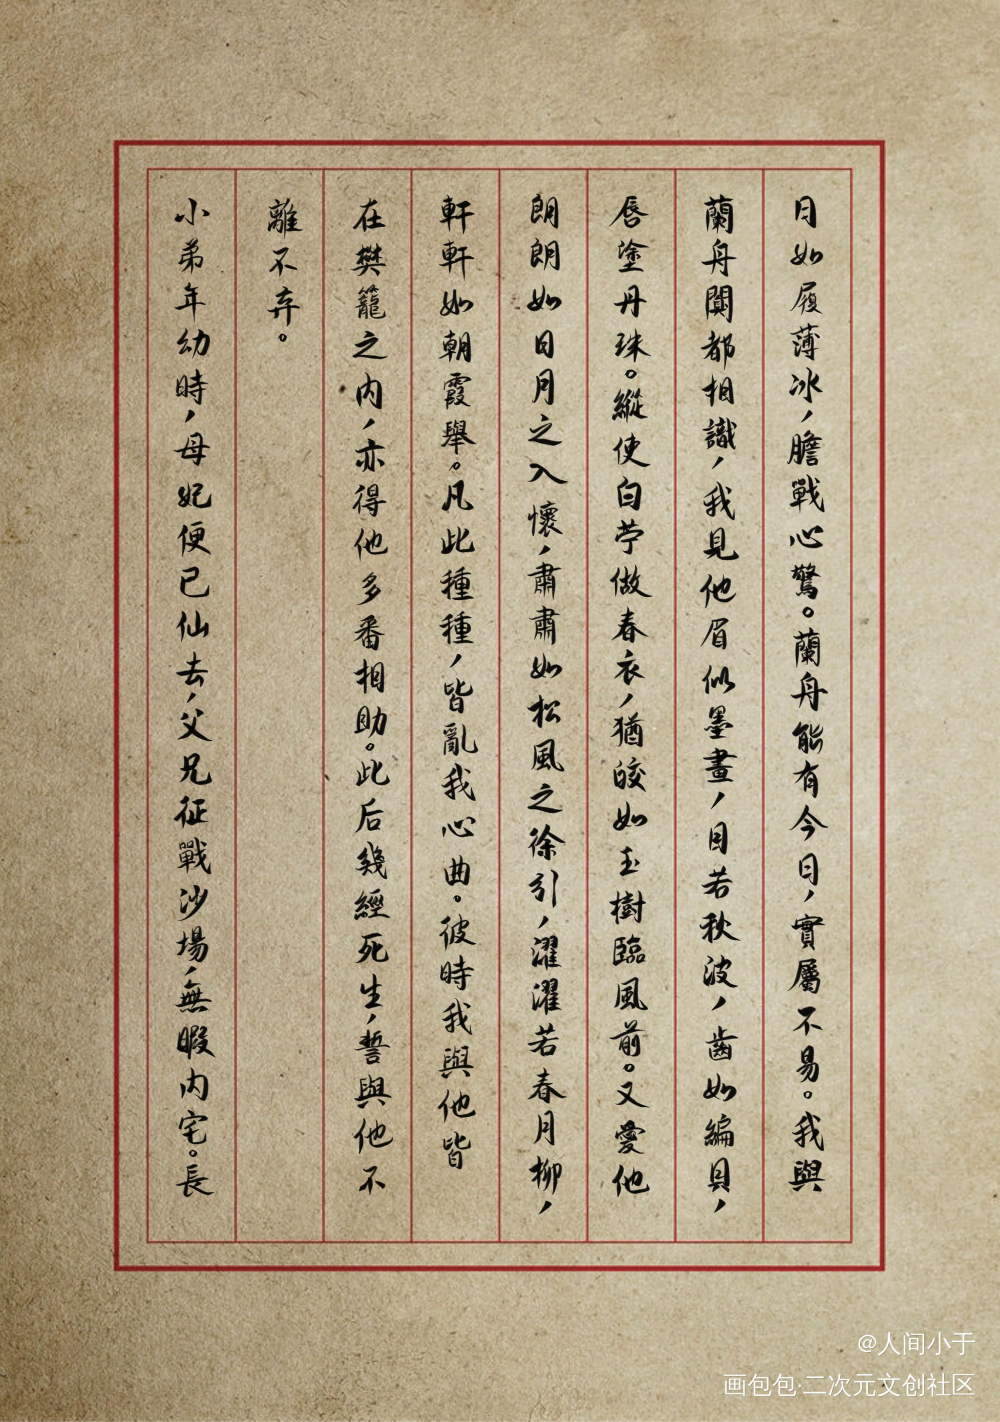 日如履薄冰，膽戰心驚。蘭舟能有今日，實屬不易。我與
蘭舟闃都相識，我見他眉似墨畫，目若秋波，齒如編貝，
唇塗丹珠。縱使白苧做春衣，猶皎如玉樹臨風前。又愛他
朗朗如日月之入懷，肅肅如松風之徐引，濯濯若春月柳，
軒軒如朝霞舉。凡此種種，皆亂我心曲。彼時我與他皆
在樊籠之内，亦得他多番相助。此后幾經死生，誓與他不
離不弃。
小弟年幼時，母妃便已仙去，父兄征戰沙場，無暇内宅。長
@人间小于
画包包·二次元文创社区